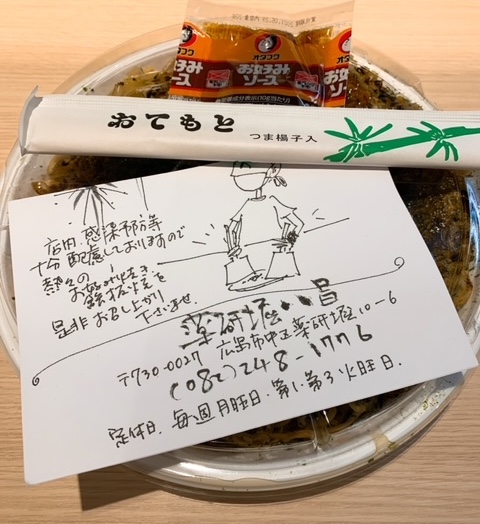 オタフク
お好み
ソース
お好み
ソース
おてもと
つま楊子入
店内、感染予防等
十分配慮しておりますので
熱々の
お好み焼き、
鉄板焼を
是非お召し上がり
下さいませ
薬研堀 八昌
〒730-0027 広島市中区薬研堀10-6
(082)248-1776
定休日、毎週月旺日、第1、第3火旺日